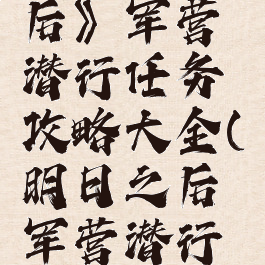 后》军营
潜行任务
攻略大全(
明日之后
军营潜行